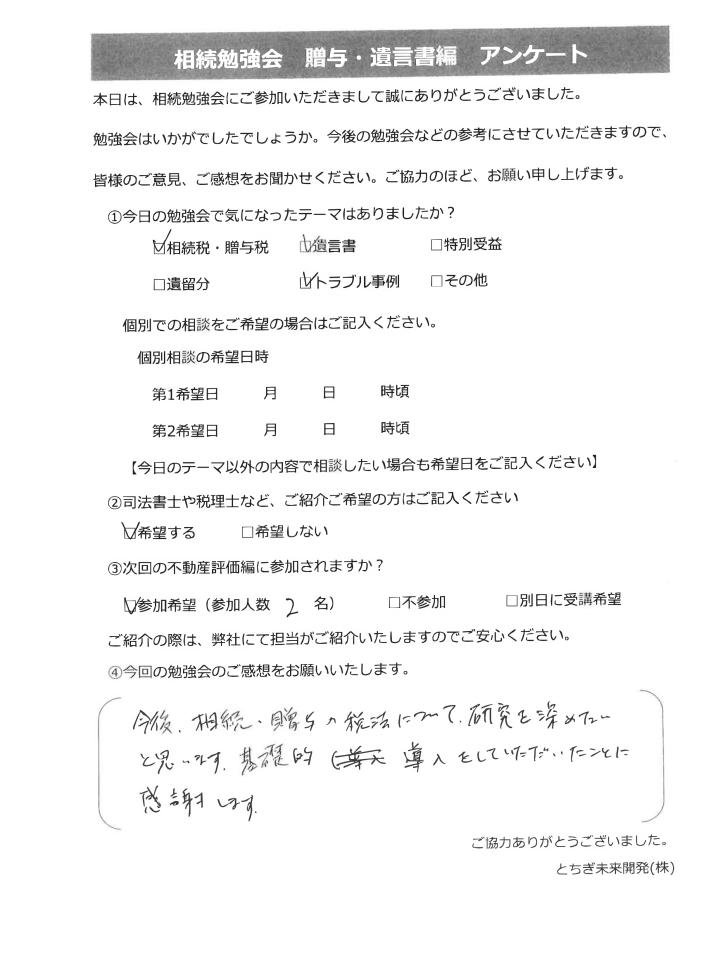 相続勉強会　贈与・遺言書編　アンケート
本日は、相続勉強会にご参加いただきまして誠にありがとうございました。
勉強会はいかがでしたでしょうか。今後の勉強会などの参考にさせていただきますので、
皆様のご意見、ご感想をお聞かせください。ご協力のほど、お願い申し上げます。
①今日の勉強会で気になったテーマはありましたか？
☑相続税・贈与税　☑遺言書　□特別受益
□遺留分　☑トラブル事例　□その他
個別での相談をご希望の場合はご記入ください。
個別相談の希望日時
第1希望日　月　日　時頃
第2希望日　月　日　時頃
【今日のテーマ以外の内容で相談したい場合も希望日をご記入ください】
②司法書士や税理士など、ご紹介ご希望の方はご記入ください
☑希望する　□希望しない
③次回の不動産評価編に参加されますか？
☑参加希望（参加人数　2　名）　□不参加　□別日に受講希望
ご紹介の際は、弊社にて担当がご紹介いたしますのでご安心ください。
④今回の勉強会のご感想をお願いいたします。
今後、相続・贈与の税法について、研究を深めたい
と思います。基礎的 導入をしていただいたことに
感謝します。
ご協力ありがとうございました。
とちぎ未来開発(株)